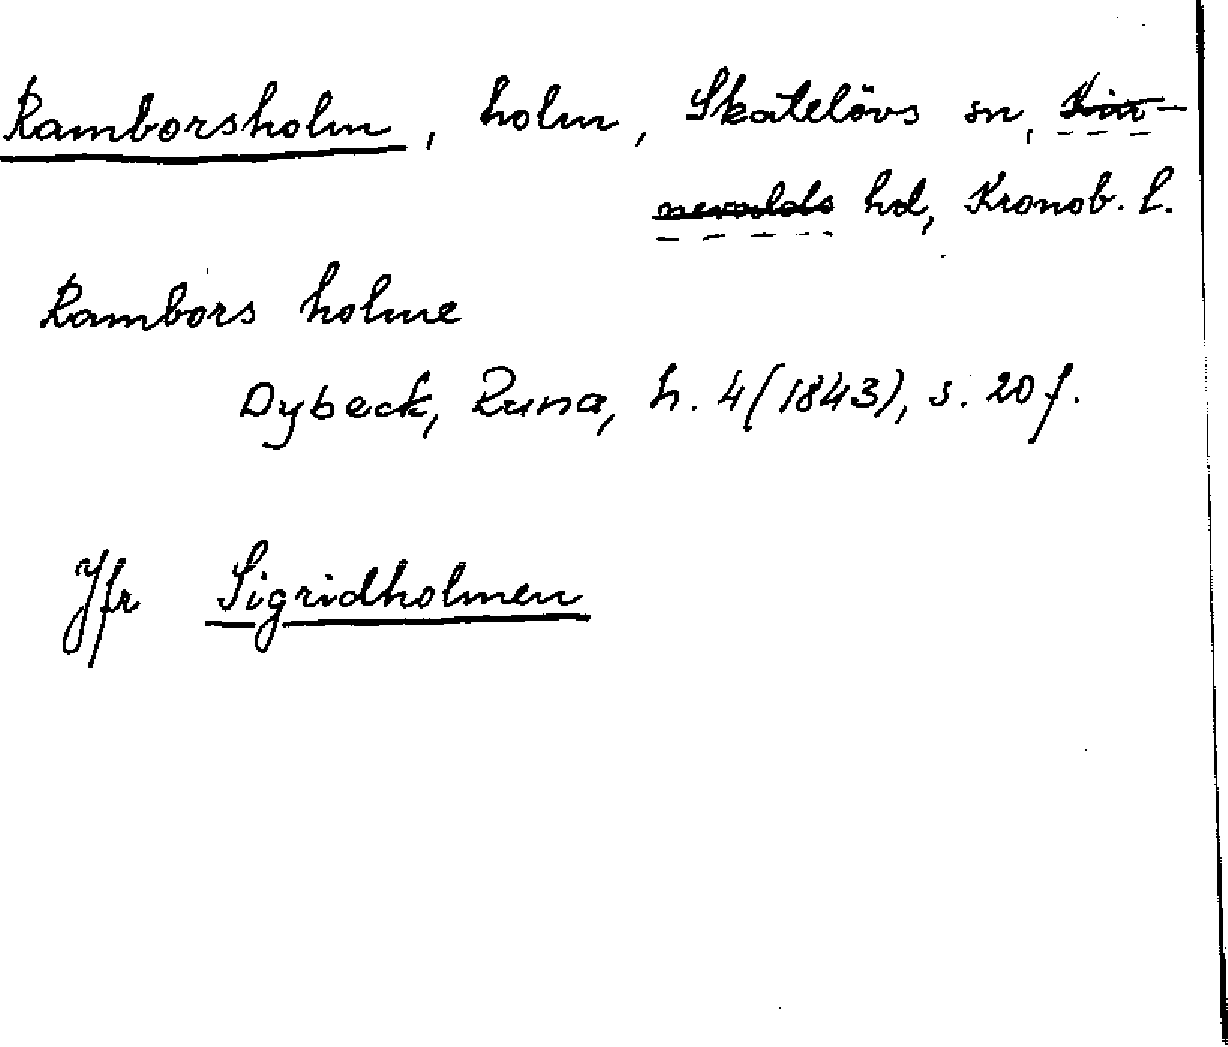 Ramborsholm, holm, Skatelövs sn, Kin-
nevalds hd, Kronob. l.
Rambors holme
Dybeck, Runa, h. 4 (1843), s. 20 f.
Jfr Sigridholmen